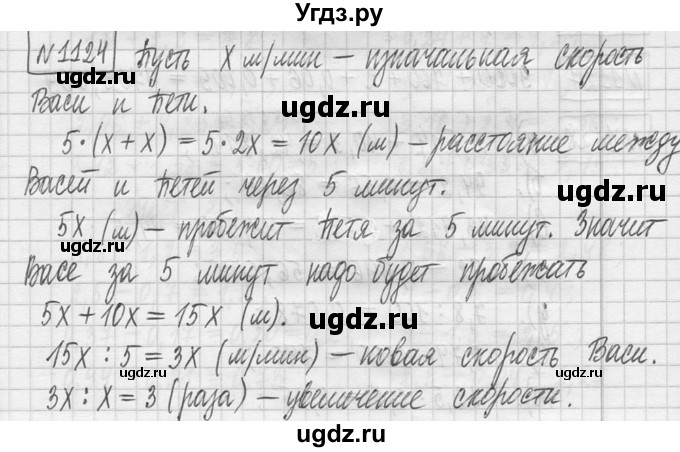 Угдз.ру
N1124 Пусть x м/мин – изначальная скорость
Васи и Пети.
5·(x+x)=5·2x=10x (м) – расстояние между
Васей и Петей через 5 минут.
5x (м) – пробежит Петя за 5 минут. Значит
Васе за 5 минут надо будет пробежать
5x+10x=15x (м).
15x : 5 = 3x (м/мин) – новая скорость Васи.
3x : x = 3 (раза) – увеличение скорости.
ugdz.ru
ugdz.ru
ugdz.ru
ugdz.ru
ugdz.ru
ugdz.ru
ugdz.ru
ugdz.ru
ugdz.ru